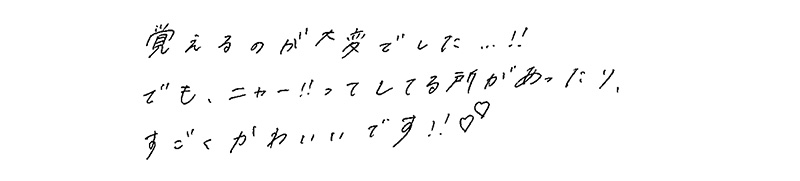 覚えるのが大変でした…!!
でも、ニャー!!ってしてる所があったり、
すごくかわいいです!!♡♡